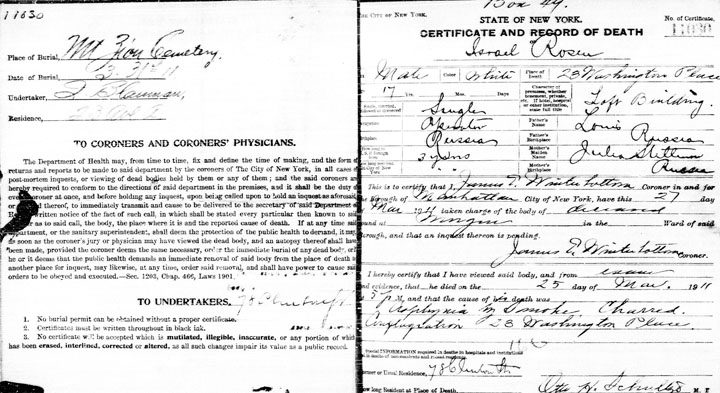 11030
Place of Burial, Mt Zion Cemetery.
Date of Burial,
Undertaker,
Residence,
TO CORONERS AND CORONERS' PHYSICIANS.
The Department of Health may, from time to time, fix and define the time of making, and the form of
returns and reports to be made to said department by the coroners of The City of New York, in all cases of
post-mortem inquests, or viewing of dead bodies held by them or any of them; and the said coroners are
hereby required to conform to the directions of said department in the premises, and it shall be the duty of
coroner at once, and before holding any inquest, upon being called upon to hold an inquest as aforesaid,
or thereof, to immediately transmit and cause to be delivered to the secretary of said Department of
written notice of the fact of such call, in which shall be stated every particular then known to said
as to said call, the body, the place it is and the reported cause of death. If at any time said
department, or the sanitary superintendent, shall deem the protection of the public health to demand, it may,
as soon as the coroner's jury or physician may have viewed the dead body, and an autopsy thereof shall have
been made, provided the coroner deems the same necessary, order the immediate burial of any dead body, or
he or it deems that the public health demands an immediate removal of said body from the place of death to
another place for inquest, may likewise, at any time, order said removal, and shall have power to cause said
orders to be obeyed and executed.—Sec. 1203, Chap. 466, Laws 1901.
TO UNDERTAKERS.
1. No burial permit can be obtained without a proper certificate.
2. Certificates must be written throughout in black ink.
3. No certificate will be accepted which is mutilated, illegible, inaccurate, or any portion of which
has been erased, interlined, corrected or altered, as all such changes impair its value as a public record.
Box 49.
THE CITY OF NEW YORK.
STATE OF NEW YORK.
No. of Certificate,
CERTIFICATE AND RECORD OF DEATH
11030
Israel Rosen
Male Color White Place of Death 23 Washington Place
17 Yrs. Mos. Days
Character of premises, whether tenement, private, etc. If hotel, hospital or other institution, state full title
Loft Building.
Single
Operator Father's Name Louis
Russia Father's Birthplace Russia
3 yrs Mother's Maiden Name Julia
Mother's Birthplace Russia
This is to certify that I, James E. Winterbottom Coroner in and for
Borough of Manhattan City of New York, have this 27 day
Mar 1911 taken charge of the body of deceased
found at Morgue in the Ward of said
Borough, and that an inquest thereon is pending.
James E. Winterbottom Coroner.
I hereby certify that I have viewed said body, and from
and evidence, that he died on the 25 day of Mar. 1911
5 P M, and that the cause of his death was
Asphyxia by Smoke, Charred.
Conflagration 23 Washington Place
Special INFORMATION required in deaths in hospitals and institutions
and in deaths of non-residents and recent residents.
Former or Usual Residence, 78 Clinton St.
How long Resident at Place of Death, Otto H. Schultze M. D.